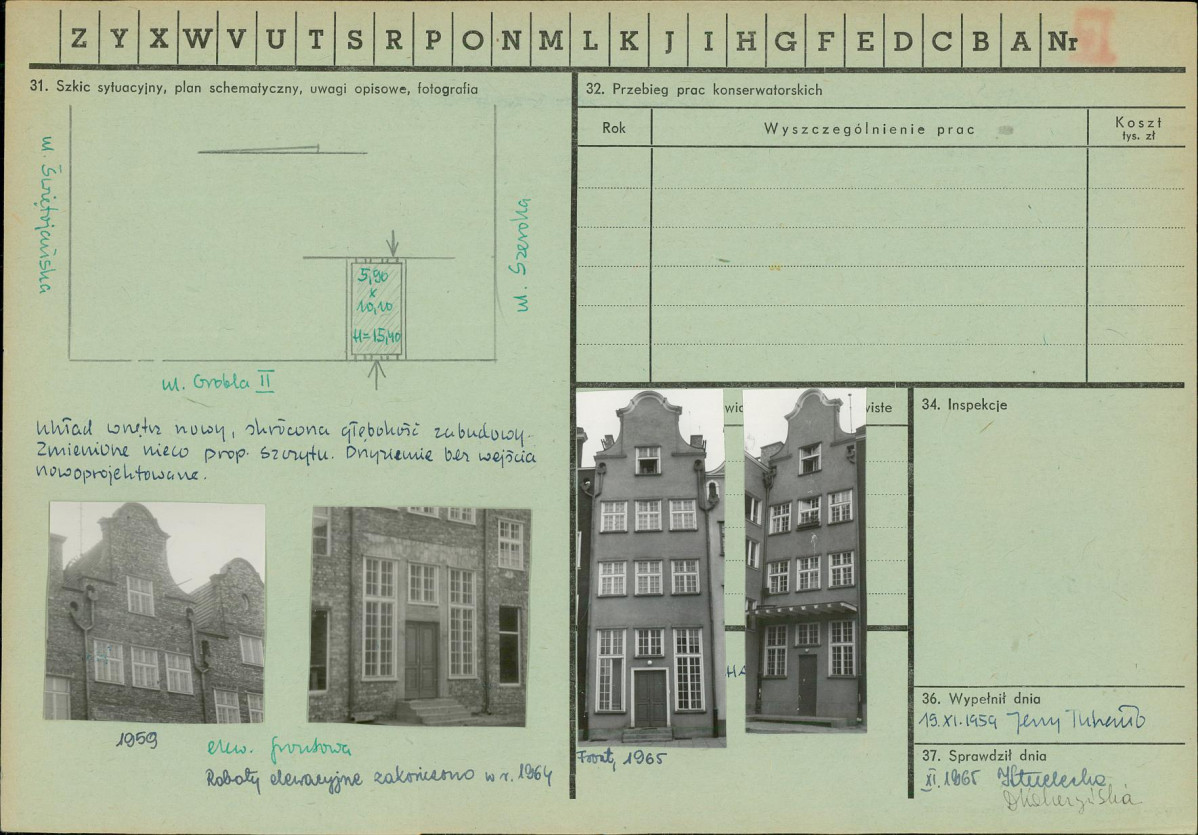 Z Y X W V U T S R P O N M L K J I H G F E D C B A Nr
31. Szkic sytuacyjny, plan schematyczny, uwagi opisowe, fotografia
ul. Świętojańska
5,90
x
10,10
H=15,40
ul. Szeroka
ul. Grobla II
Układ wnętrz nowy, skrócona głębokość zabudowy.
Zmienione nieco prop. szczytu. Przyziemie bez wejścia
nowoprojektowane.
1959
elew. frontowa
Roboty elewacyjne zakończono w r. 1964
32. Przebieg prac konserwatorskich
Rok
Wyszczególnienie prac
Koszt
tys. zł
Fronty 1965
34. Inspekcje
36. Wypełnił dnia
15.XI.1959 Jerzy
37. Sprawdził dnia
XI.1965